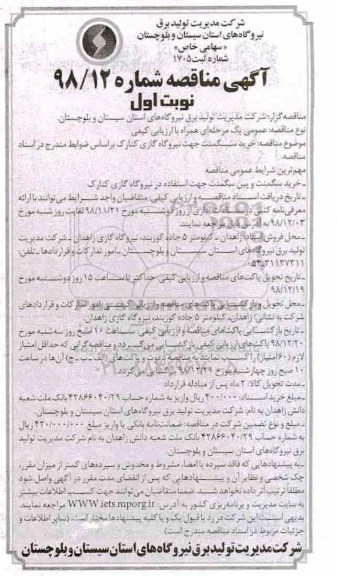 شرکت مدیریت تولید برق
نیروگاه‌های استان سیستان و بلوچستان
«سهامی خاص»
شماره ثبت ۱۷۰۵
آگهی مناقصه شماره ۹۸/۱۲
نوبت اول
مناقصه‌گزار: شرکت مدیریت تولید برق نیروگاه‌های استان سیستان و بلوچستان.
نوع مناقصه: عمومی یک مرحله‌ای همراه با ارزیابی کیفی
موضوع مناقصه: خرید سگمنت جهت نیروگاه گازی کنارک براساس ضوابط مندرج در اسناد
مناقصه
مهم‌ترین شرایط عمومی مناقصه
-خرید سگمنت و پین سگمنت جهت استفاده در نیروگاه گازی کنارک
-تاریخ دریافت اسناد مناقصه و ارزیابی کیفی: متقاضیان واجد شرایط می‌توانند با ارائه
معرفی‌نامه کتبی از روز دوشنبه مورخ ۹۸/۱۱/۲۱ لغایت روز شنبه مورخ
۹۸/۱۲/۰۳ به مراجعه نمایند
-محل فروش اسناد: زاهدان - کیلومتر ۵ جاده گوربند، نیروگاه گازی زاهدان - شرکت مدیریت
تولید برق نیروگاه‌های استان سیستان و بلوچستان - امور تدارکات و قراردادها - تلفن:
-تاریخ تحویل پاکت‌های مناقصه و ارزیابی کیفی: حداکثر تا ساعت ۱۵ روز دوشنبه مورخ
۹۸/۱۲/۱۹
-محل تحویل و بازگشایی پاکت‌های مناقصه و ارزیابی کیفی: امور تدارکات و قراردادهای
شرکت به نشانی: زاهدان، کیلومتر ۵ جاده گوربند، نیروگاه گازی زاهدان
-تاریخ بازگشایی پاکت‌های مناقصه و ارزیابی کیفی: ساعت ۱۰ صبح روز سه‌شنبه مورخ
۹۸/۱۲/۲۰ پاکت‌های ارزیابی کیفی بازگشایی می‌گردد و مناقصه‌گرانی که حداقل امتیاز
لازم (۶۰ امتیاز) را کسب نمایند به مناقصه دعوت و پاکت‌های (الف-ب-ج) آن‌ها در ساعت
۱۰ صبح روز چهارشنبه مورخ بازگشایی می‌گردد.
-مدت تحویل کالا: ۲ ماه پس از مبادله قرارداد
-مبلغ خرید اسناد: ۴۰۰/۰۰۰ ریال واریز به شماره حساب ۴۲۸۶۶۰۴۰/۲۹ بانک ملت شعبه
دانش زاهدان به نام: شرکت مدیریت تولید برق نیروگاه‌های استان سیستان و بلوچستان.
-مبلغ و نوع تضمین شرکت در مناقصه: ضمانت‌نامه بانکی یا واریز مبلغ ۴۲۰/۰۰۰/۰۰۰ ریال
به شماره حساب ۴۲۸۶۶۰۴۰/۲۹ بانک ملت شعبه دانش زاهدان به نام شرکت مدیریت تولید
برق نیروگاه‌های استان سیستان و بلوچستان.
-به پیشنهادهایی که فاقد سپرده یا امضا، مشروط و مخدوش و سپرده‌های کمتر از میزان مقرر،
چک شخصی و نظایر آن و پیشنهادهایی که پس از انقضای مدت مقرر در آگهی واصل شود
مطلقا ترتیب اثر داده نخواهد شد. ضمنا متقاضیان می‌توانند جهت کسب اطلاعات بیشتر
به سایت مدیریت و برنامه‌ریزی کشور به آدرس: WWW.iets.mporg.ir مراجعه نمایند.
بدیهی است این شرکت در رد یا قبول یک و یا کلیه پیشنهادها مختار است. (سایر اطلاعات و
جزئیات مربوط در اسناد مناقصه مندرج است)
شرکت مدیریت تولید برق نیروگاه‌های استان سیستان و بلوچستان